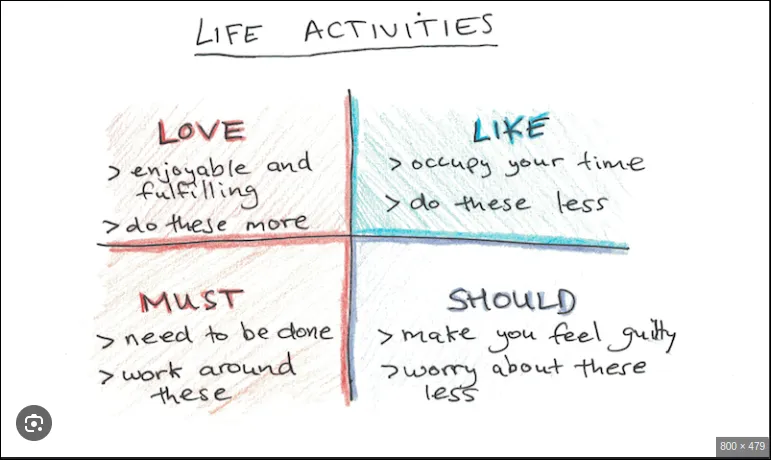 LIFE ACTIVITIES
LOVE
> enjoyable and
fulfilling
> do these more
LIKE
> occupy your time
> do these less
MUST
> need to be done
> work around
these
SHOULD
> make you feel guilty
> worry about these
less
800 × 479